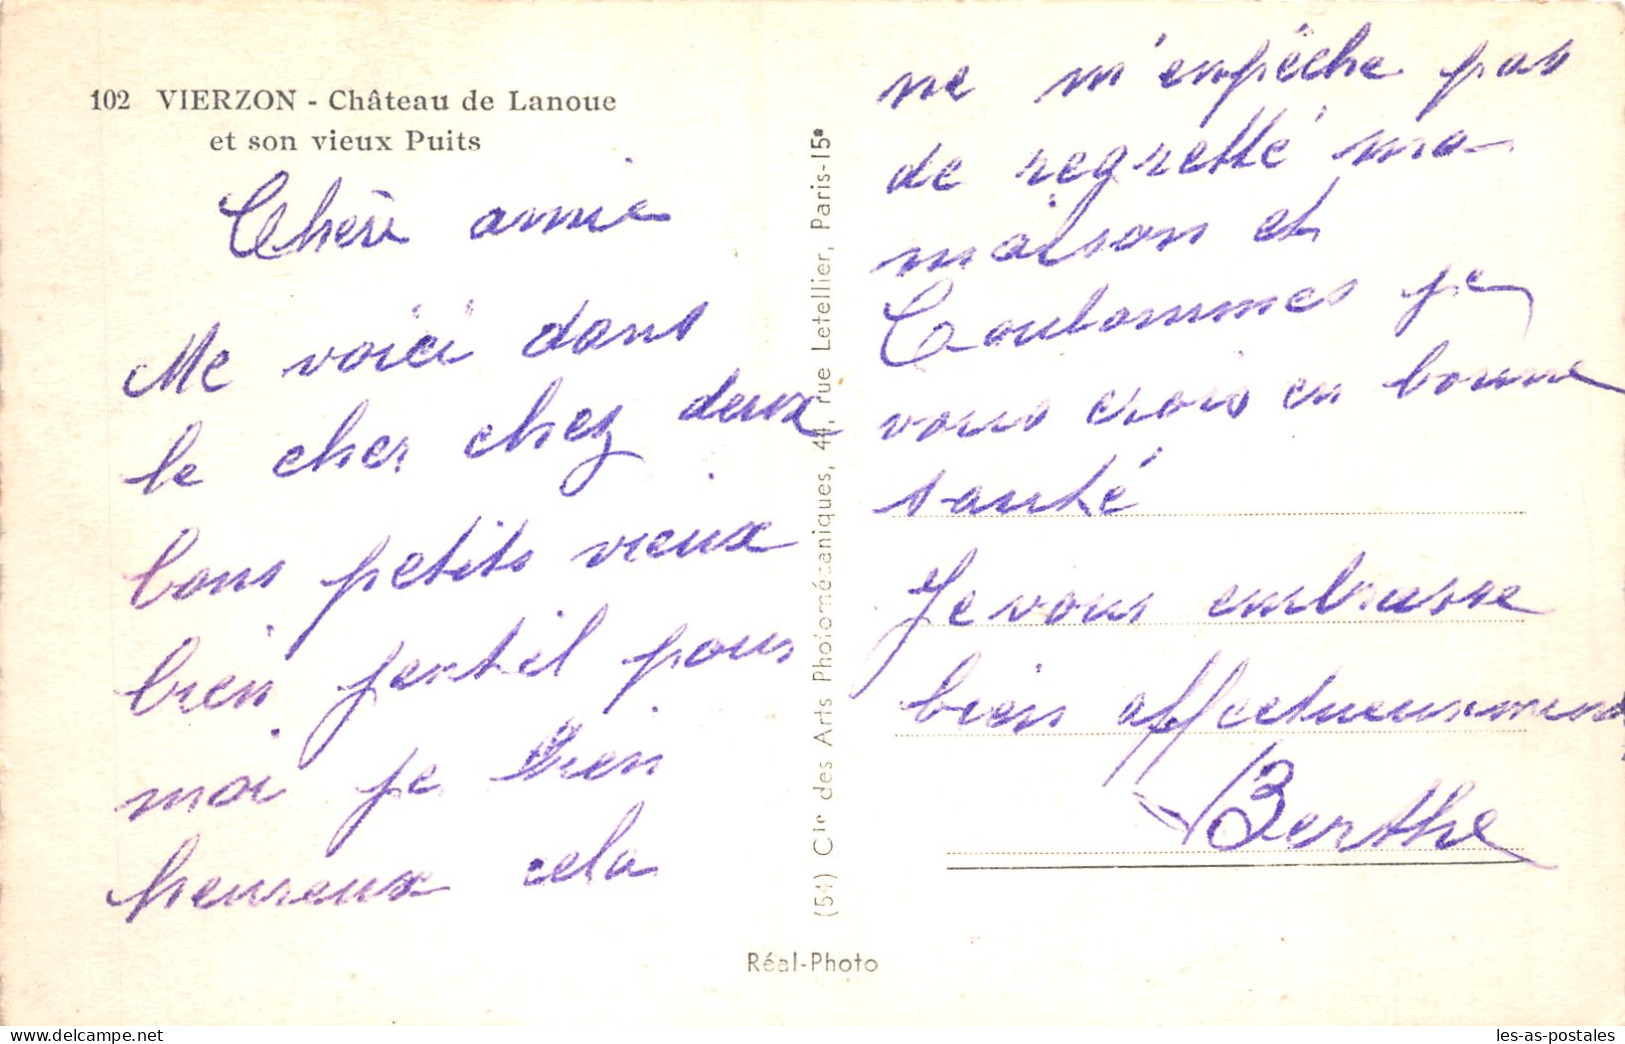 102 VIERZON - Château de Lanoue
et son vieux Puits
Chère amie
Me voici dans
le cher chez deux
bons petits vieux
bien jentil pour
moi je bien
heureux cela
ne m'enpêche pas
de regretté ma
maison et
Coulommes je
vous crois en bonne
santé
Je vous embrasse
bien affectueusement
Berthe
(54) Cie des Arts Photomécaniques, 44, rue Letellier, Paris-15e
Réal-Photo
les-as-postales